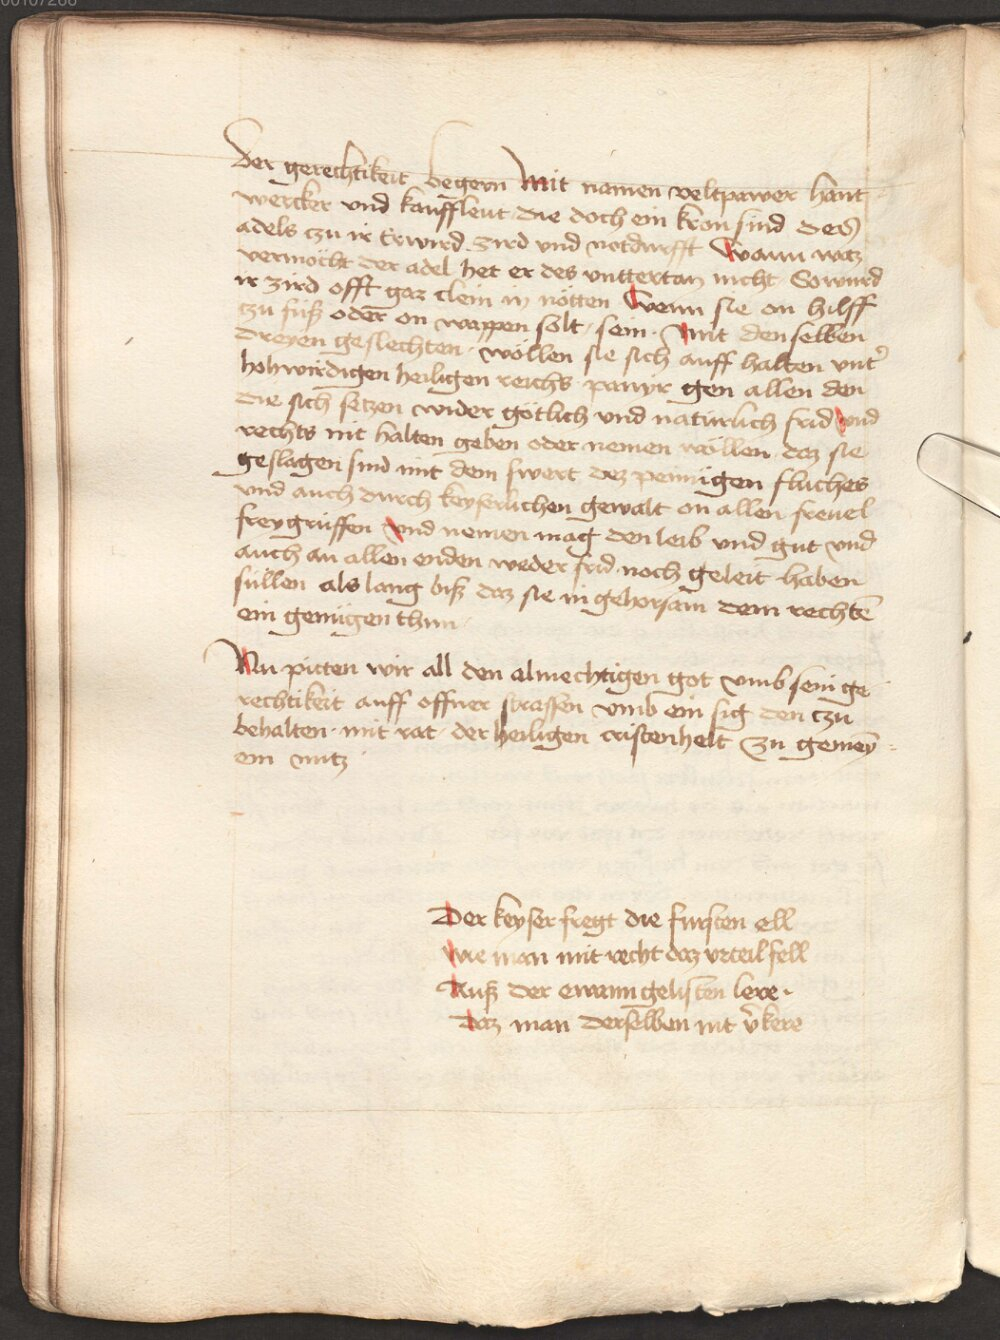 der gerechtikeit begern Mit namen veltpawer hant
wercker vnd kauffleut die doch ein kron sind des
adels czu ir Erwird zird vnd notdurfft Wann waz
vermöcht der adel het er des vnttertan nicht So wurd
ir zird offt gar clein in nötten Wenn sie on hilff
zu fuß oder on wappen solt sein. Mit den selben
dreyen geslechten wöllen sie sich auff halten vnt̉
hohwirdigen heiligen reichs panyr gen allen den
die sich setzen wider götlich vnd naturlich frid vnd
rechts nit halten geben oder nemen wöllen daz sie
geslagen sind mit dem swert dez peinigen fluches
vnd auch durch keyserlichen gewalt on allen freuel
frey gruffen vnd nemen mag den leib vnd gut vnd
auch an allen enden weder frid noch geleit haben
süllen als lang biß daz sie in gehorsam dem rechtē
ein genügen thun
Nu pitten wir all den almechtigen got vmb sein ge
rechtikeit auff offner strassen vmb ein sig den czu
behalten mit rat der heiligen cristenheit zu gemey
em nutz
Der keyser fregt die fursten ell
wie man mit recht daz vrteil fell
Auß der ewanngelisten lere.
Daz man derselben nit v̉kere